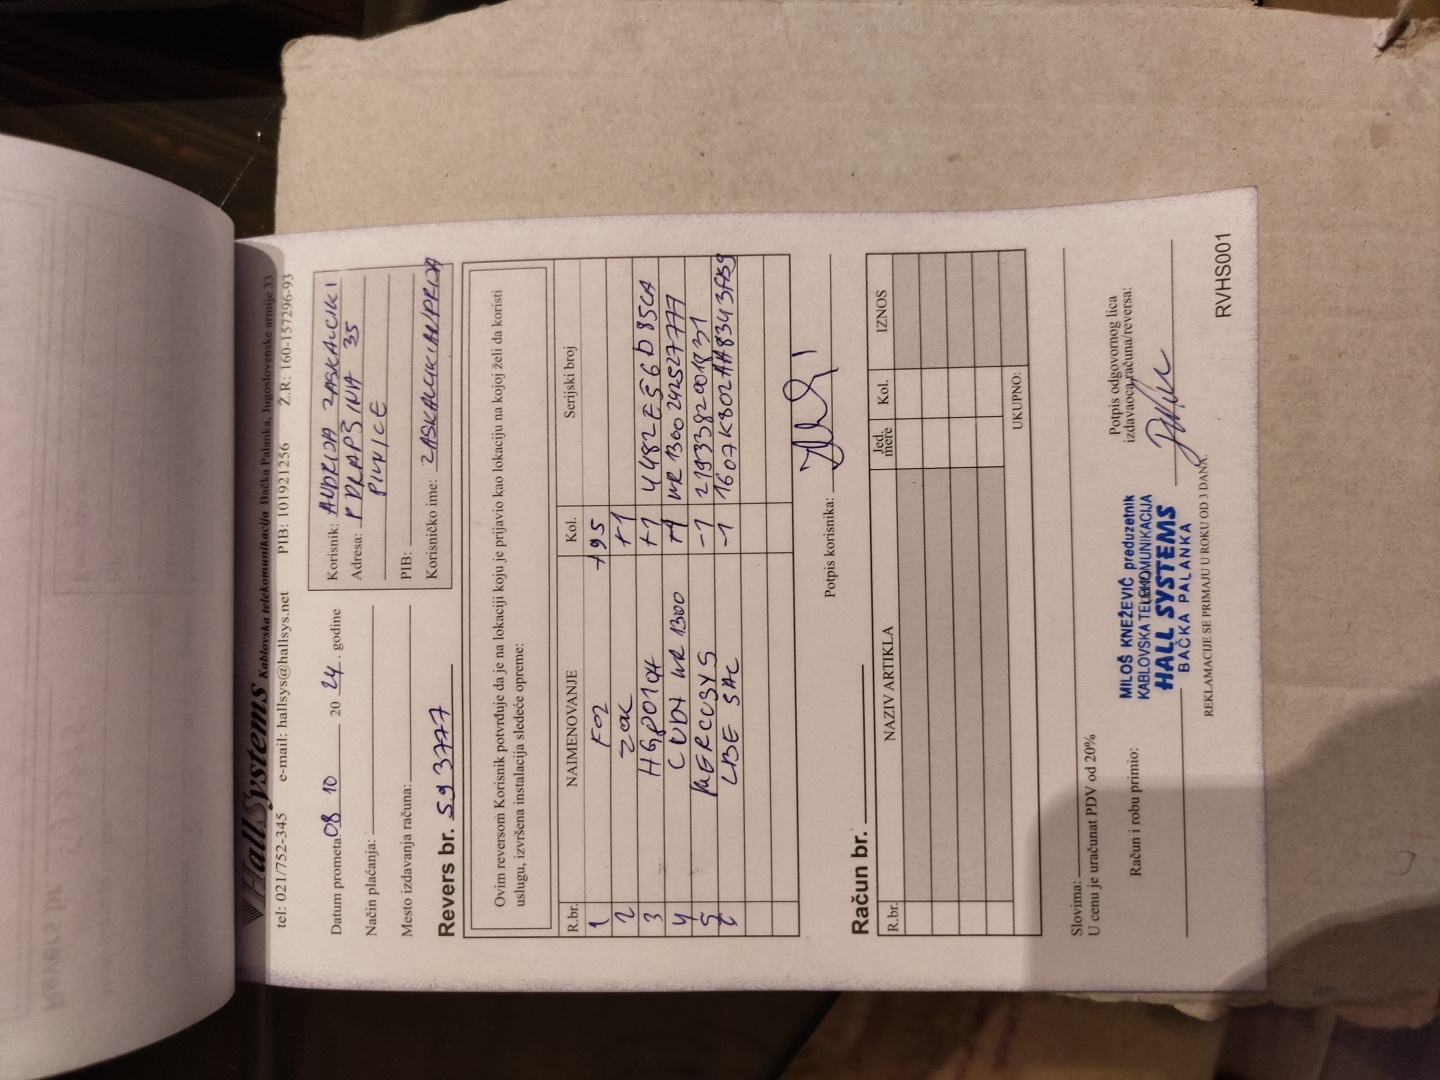 HallSystems Kablovska telekomunikacija Bačka Palanka, Jugoslovenske armije 33
tel: 021/752-345 e-mail: hallsys@hallsys.net PIB: 101921256 Ž.R: 160-157296-93
Datum prometa: 08 10 20 24. godine
Način plaćanja:
Mesto izdavanja računa:
Korisnik: ANDRIJA ZASKALICKI
Adresa: 35
PIVNICE
PIB:
Korisničko ime: ZASKALICKIANDRIJA
Revers br. 593777
Ovim reversom Korisnik potvrđuje da je na lokaciji koju je prijavio kao lokaciju na kojoj želi da koristi
uslugu, izvršena instalacija sledeće opreme:
R.br. NAIMENOVANJE Kol. Serijski broj
1 FO2 +95
2 ZOK +1
3 +1
4 CUDY WR 1300 +1 WR1300242527777
5 MERCUSYS -1 2193382001831
6 LBE 5AC -1
Potpis korisnika:
Račun br.
R.br. NAZIV ARTIKLA Jed. mere Kol. IZNOS
UKUPNO:
Slovima:
U cenu je uračunat PDV od 20%
Račun i robu primio:
Potpis odgovornog lica
izdavaoca računa/reversa:
MILOŠ KNEŽEVIĆ preduzetnik
KABLOVSKA TELEKOMUNIKACIJA
HALL SYSTEMS
BAČKA PALANKA
REKLAMACIJE SE PRIMAJU U ROKU OD 3 DANA.
RVHS001